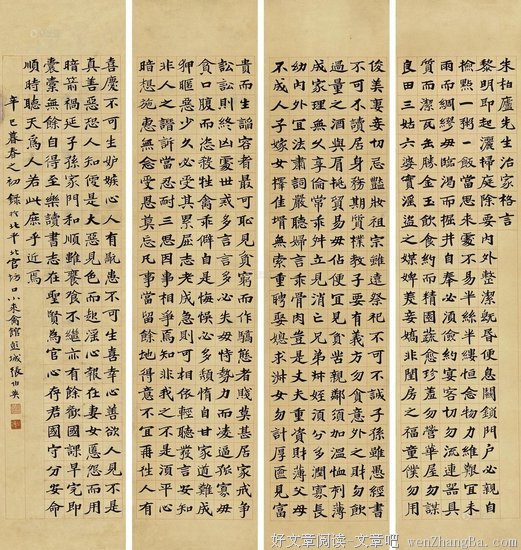 朱柏廬先生治家格言
黎明即起灑掃庭除要內外整潔既昏便息關鎖門戶必親自
檢點一粥一飯當思來處不易半絲半縷恒念物力維艱宜未
雨而綢繆毋臨渴而掘井自奉必須儉約宴客切勿流連器具
質而潔瓦缶勝金玉飲食約而精園蔬愈珍羞勿營華屋勿謀
良田三姑六婆實淫盜之媒婢美妾嬌非閨房之福童僕勿用
俊美妻妾切忌豔妝祖宗雖遠祭祀不可不誠子孫雖愚經書
不可不讀居身務期質樸教子要有義方勿貪意外之財勿飲
過量之酒與肩挑貿易毋佔便宜見貧苦親鄰須加溫恤刻薄
成家理無久享倫常乖舛立見消亡兄弟叔姪須分多潤寡長
幼內外宜法肅詞嚴聽婦言乖骨肉豈是丈夫重資財薄父母
不成人子嫁女擇佳壻無索重聘娶媳求淑女勿計厚奩見富
貴而生諂容者最可恥見貧窮而作驕態者賤莫甚居家戒爭
訟訟則終凶處世戒多言言多必失毋恃勢力而凌逼孤寡毋
貪口腹而恣殺牲禽乖僻自是悔悞必多頹惰自甘家道難成
狎暱惡少久必受其累屈志老成急則可相依輕聽發言安知
非人之譖訴當忍耐三思因事相爭焉知非我之不是須平心
暗想施惠無念受恩莫忘凡事當留餘地得意不宜再往人有
喜慶不可生妒嫉心人有禍患不可生喜幸心善欲人見不是
真善惡恐人知便是大惡見色而起淫心報在妻女匿怨而用
暗箭禍延子孫家門和順雖饔飧不繼亦有餘歡國課早完即
囊橐無餘自得至樂讀書志在聖賢為官心存君國守分安命
順時聽天為人若此庶乎近焉
辛巳暮春之初錄於北平北官坊口小來禽館彭城張伯英
好文章阅读-文章吧 wenZhangBa.com